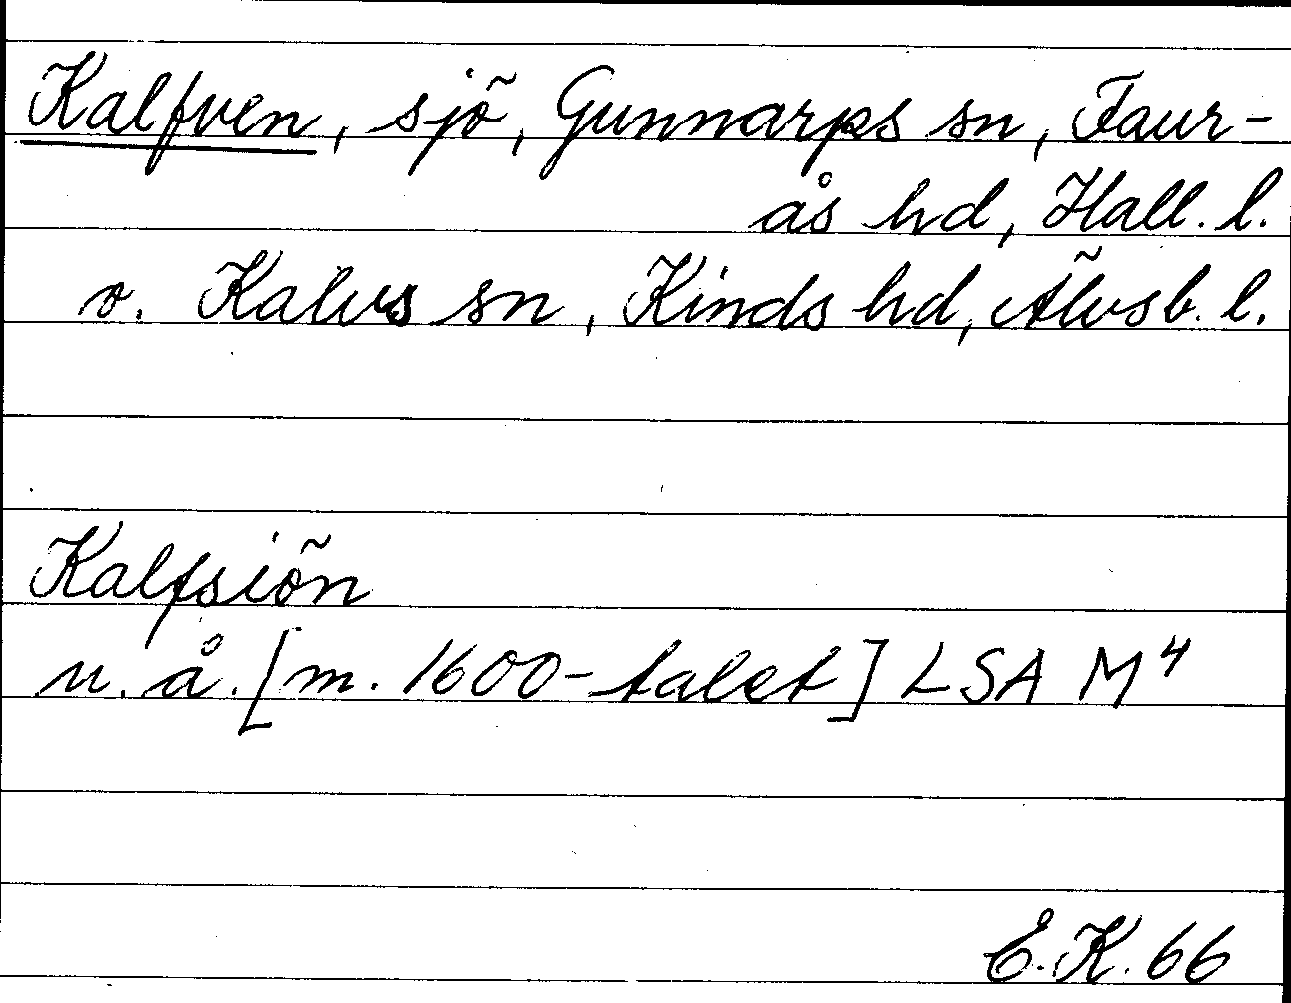 Kalfven, sjö, Gunnarps sn, Faur-
ås hd, Hall. l.
o. Kalvs sn, Kinds hd, Älvsb. l.
Kalfsiön
u. å. [m. 1600-talet] LSA M4
E.K. 66